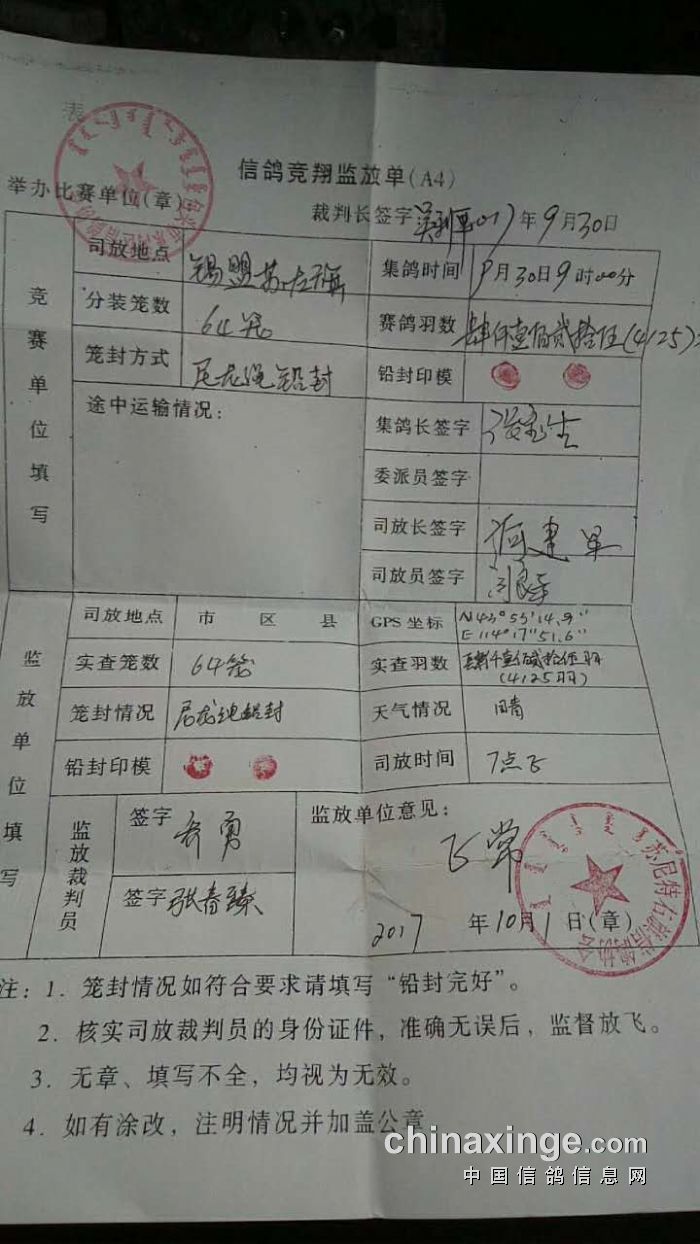 表
信鸽竞翔监放单(A4)
举办比赛单位(章)
裁判长签字 2017年9月30日
竞赛单位填写
司放地点 锡盟苏右旗 集鸽时间 9月30日9时00分
分装笼数 64笼 赛鸽羽数 肆仟壹佰贰拾伍(4125)
笼封方式 尼龙绳铅封 铅封印模
途中运输情况: 集鸽长签字
委派员签字
司放长签字 何建军
司放员签字
监放单位填写
司放地点 市 区 县 GPS坐标 N43°53'14.9"
E114°17"51.6"
实查笼数 64笼 实查羽数 肆仟壹佰贰拾伍羽
(4125羽)
笼封情况 尼龙绳铅封 天气情况 晴
铅封印模 司放时间 7点飞
监放裁判员 签字 监放单位意见:
飞常
签字 张春臻
2017年10月1日(章)
苏尼特右旗信鸽协会
注:1. 笼封情况如符合要求请填写“铅封完好”。
2. 核实司放裁判员的身份证件,准确无误后,监督放飞。
3. 无章、填写不全,均视为无效。
4. 如有涂改,注明情况并加盖公章
chinaxinge.com
中国信鸽信息网